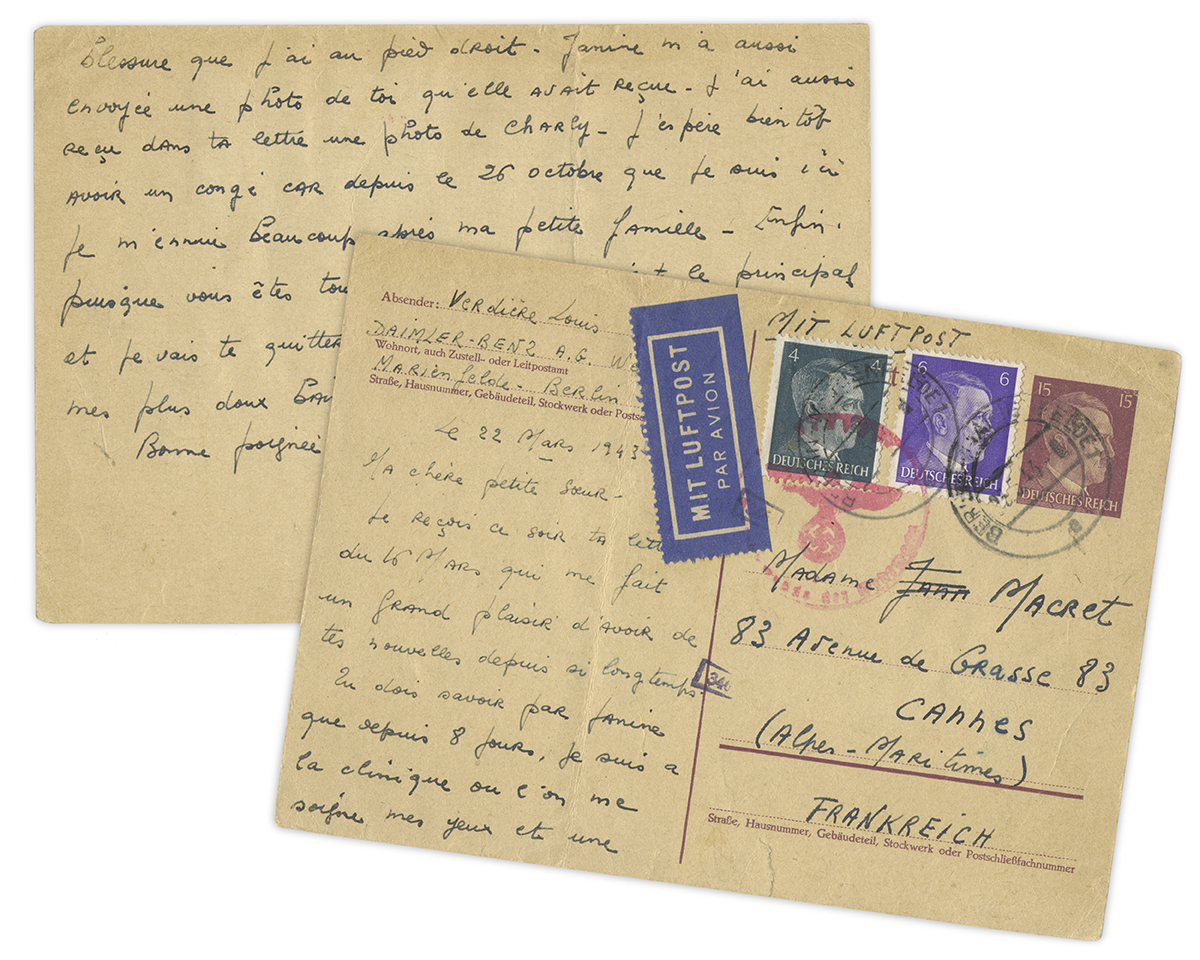 Blessure que J'ai au pied droit - Janine m'a aussi
envoyée une photo de toi qu'elle avait reçue - J'ai aussi
reçu dans ta lettre une photo de Charly - J'espère bientôt
avoir un congé car depuis le 26 octobre que je suis ici
Je m'ennui beaucoup après ma petite famille - Enfin.
puisque vous êtes le principal
et je vais te quitter
mes plus doux
Bonne poignée
Absender: Verdière Louis
DAIMLER-BENZ A.G.
Wohnort, auch Zustell- oder Leitpostamt
Marienfelde - Berlin
Straße, Hausnummer, Gebäudeteil, Stockwerk oder
Le 22 Mars 1943
Ma chère petite Sœur -
Je reçois ce soir ta
du 16 Mars qui me fait
un grand plaisir d'avoir de
tes nouvelles depuis si longtemps
Tu dois savoir par Janine
que depuis 8 jours, je suis a
la clinique ou l'on me
soigne mes yeux et une
MIT LUFTPOST
PAR AVION
MIT LUFTPOST
4 4
DEUTSCHES REICH
6 6
DEUTSCHES REICH
15 15
DEUTSCHES REICH
Madame Macret
83 Avenue de Grasse 83
Cannes
(Alpes-Maritimes)
FRANKREICH
Straße, Hausnummer, Gebäudeteil, Stockwerk oder Postschließfachnummer